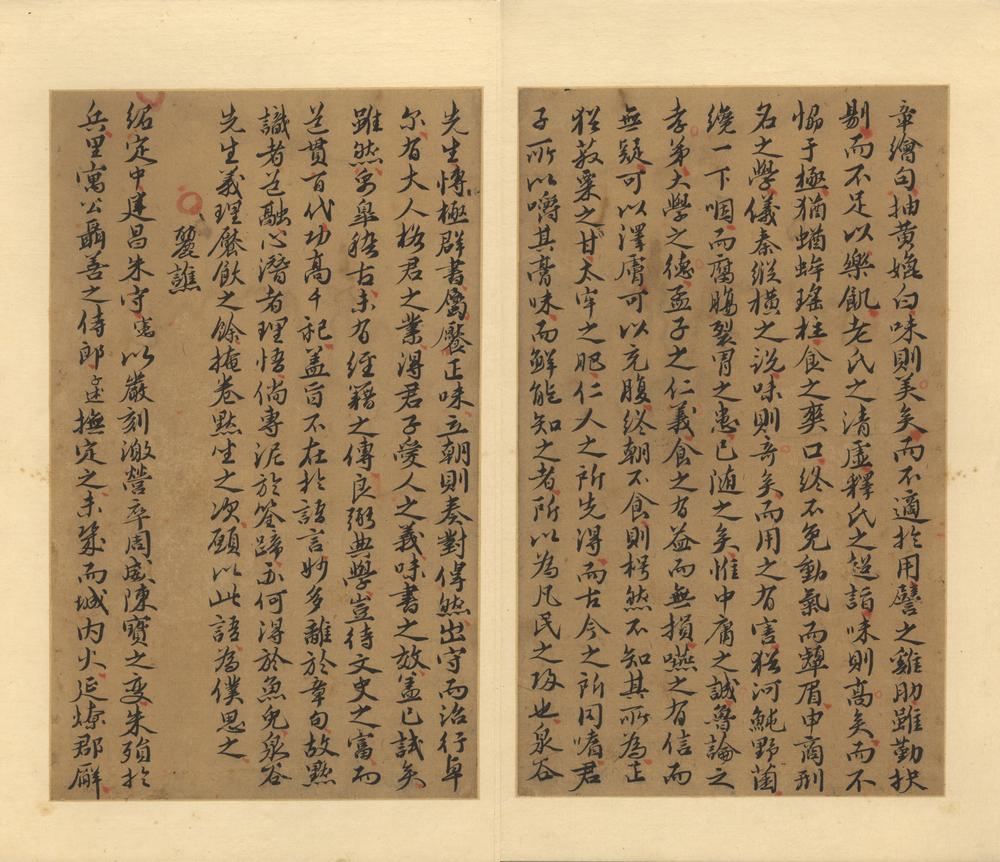 章繪句抽黃媲白味則美矣而不適於用譬之雞肋雖勤抉
剔而不足以樂飢老氏之清虛釋氏之超詣味則高矣而不
恊于極猶蝤蛑瑤柱食之爽口終不免動氣而顰眉申商刑
名之學儀秦縱橫之說味則奇矣而用之有害猶河魨野菌
纔一下咽而腐腸裂胃之患已随之矣惟中庸之誠魯論之
孝弟大學之德孟子之仁義食之有益而無損嚥之有信而
無疑可以澤膚可以充腹終朝不食則枵然不知其所為正
猶菽粟之甘太牢之肥仁人之所先得而古今之所同嗜君
子所以嚼其膏味而鮮能知之者所以為凡民之歸也泉谷
先生慱極群書屬饜正味立朝則奏對偉然出守而治行卓
尔有大人格君之業得君子愛人之義味書之放盖已試矣
雖然禹臯稽古未有經籍之傳良弼典學豈待文史之富而
道貫百代功高千祀盖旨不在於語言妙多離於章句故默
識者道融心潛者理悟倘專泥於筌蹄亦何得於魚兔泉谷
先生義理饜飫之餘掩卷默坐之次願以此語為僕思之
麗譙
紹定中建昌朱守憲以嚴刻激營卒周威陳寶之变朱殞於
兵里寓公聶善之侍郎子述撫定之未幾而城内火延燎郡廨